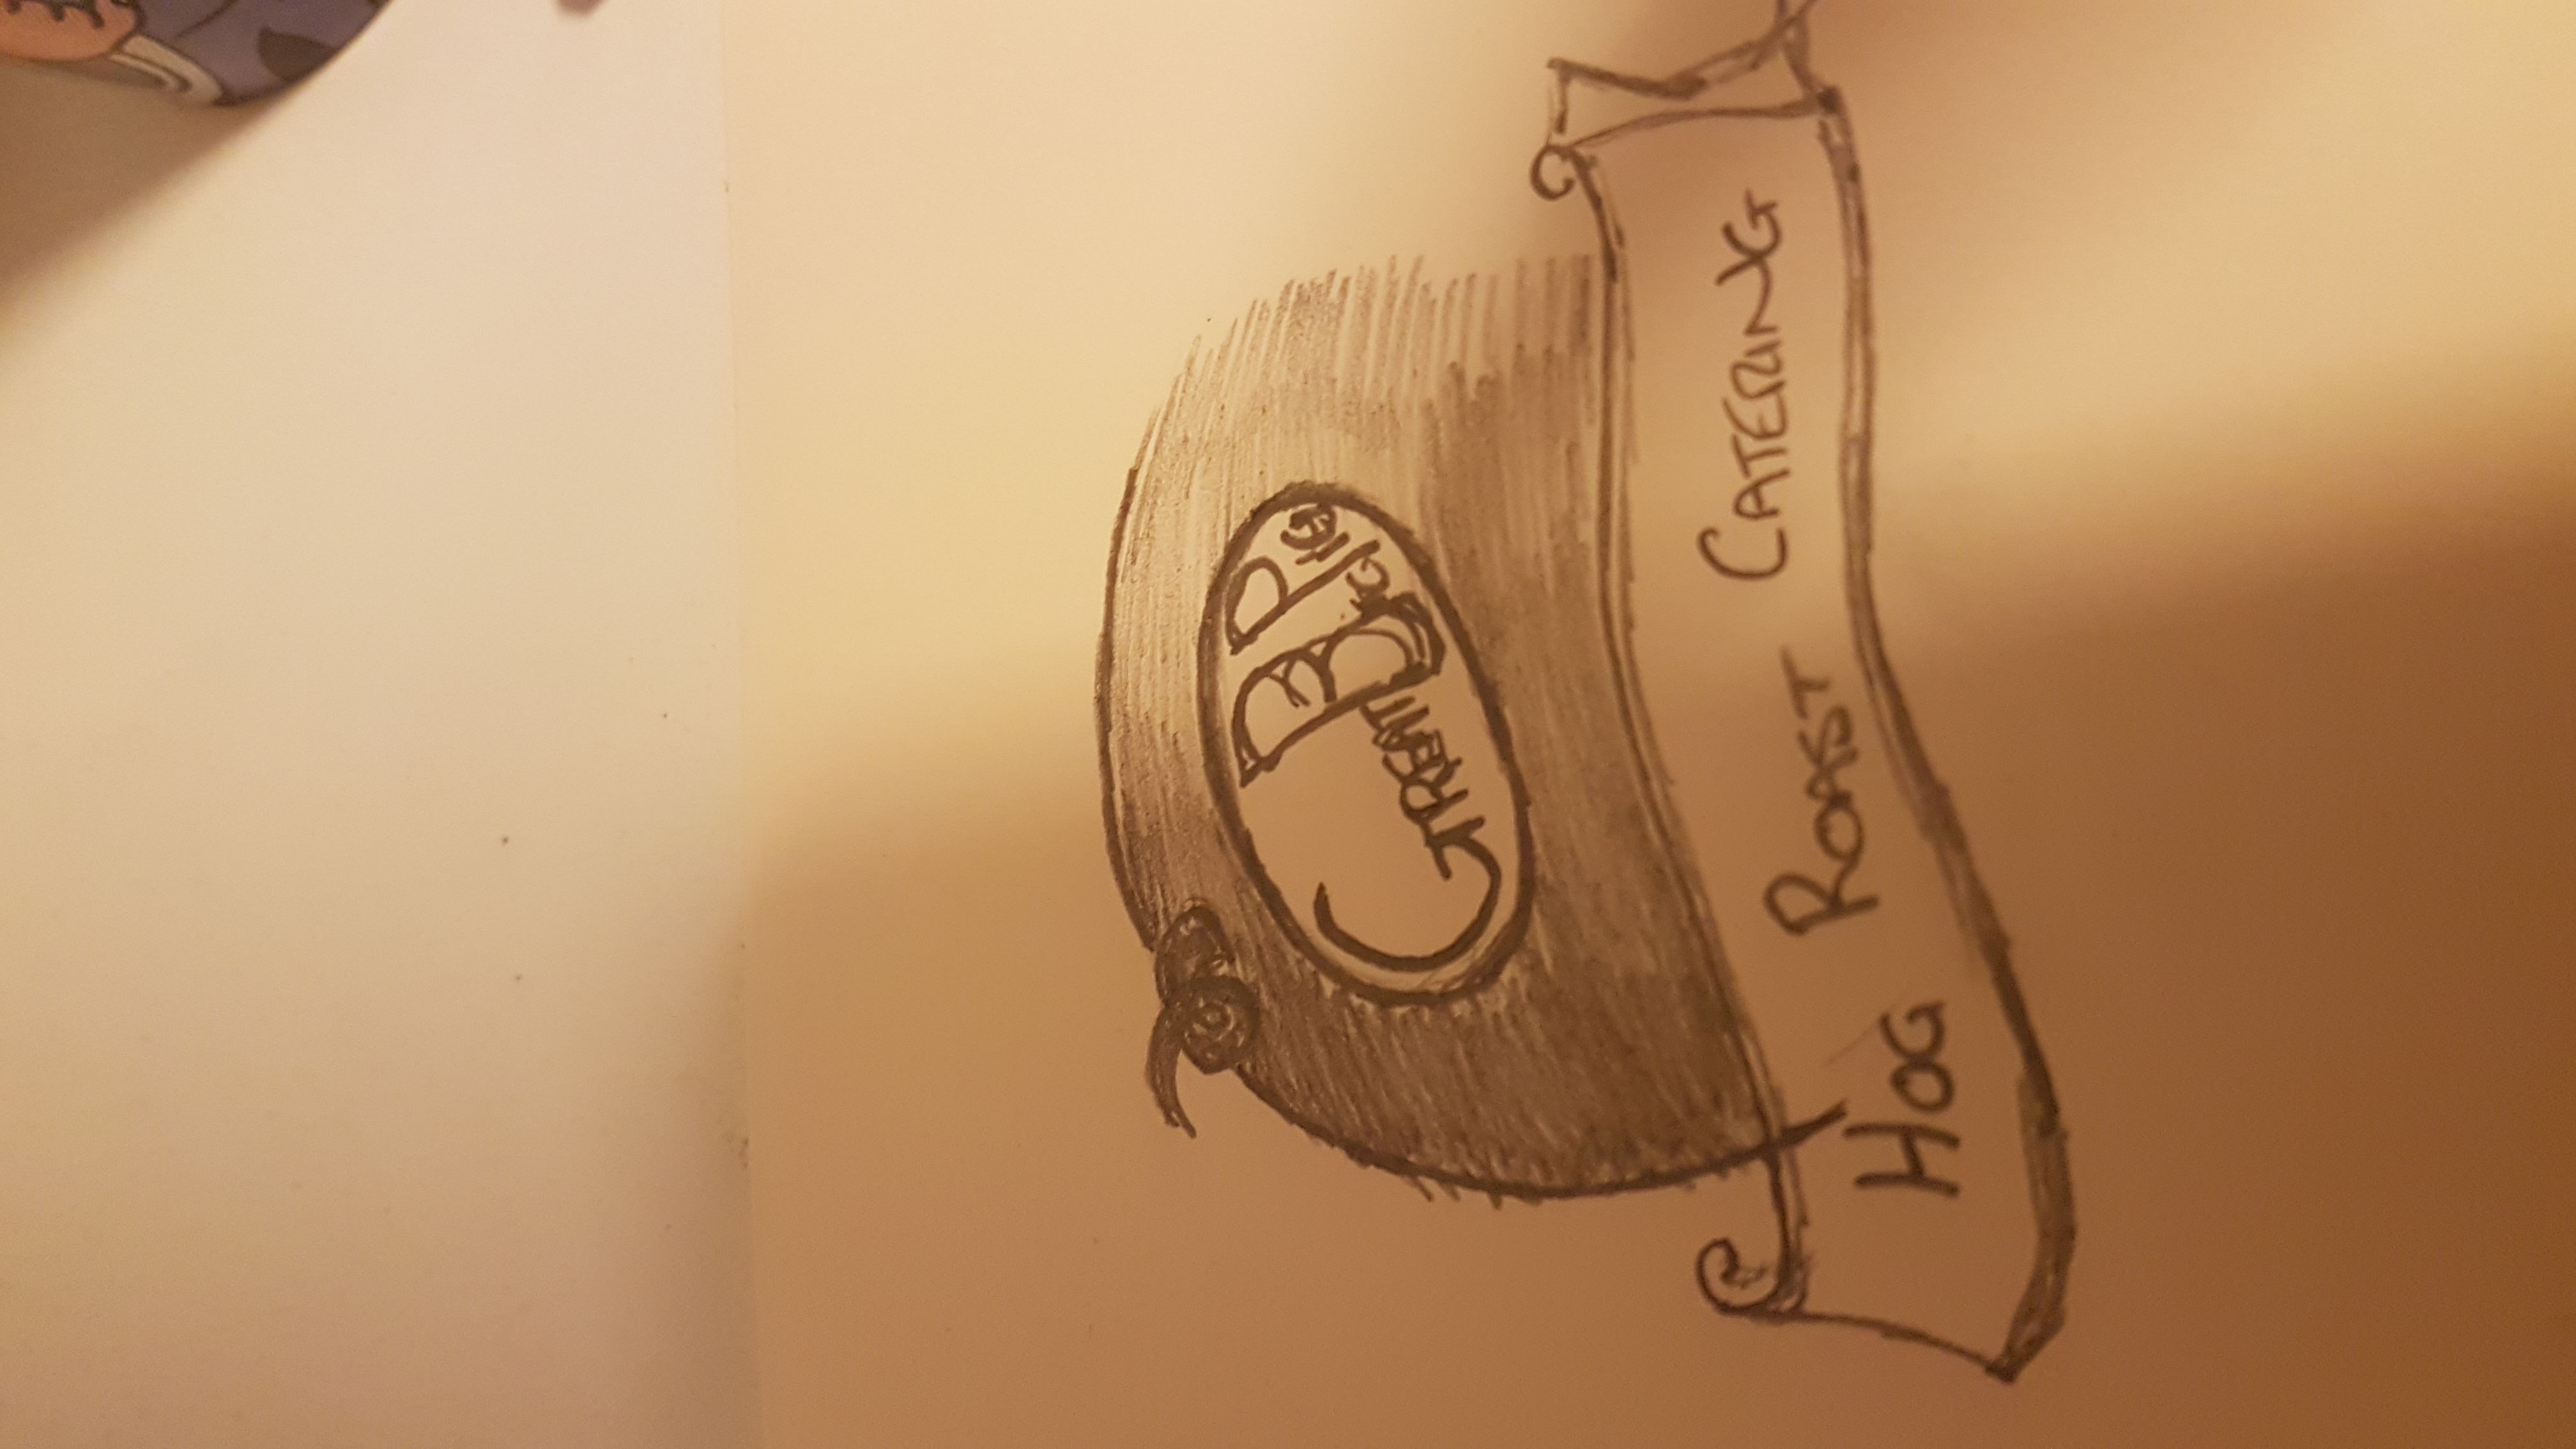 GREAT BIG PIG
HOG ROAST CATERING